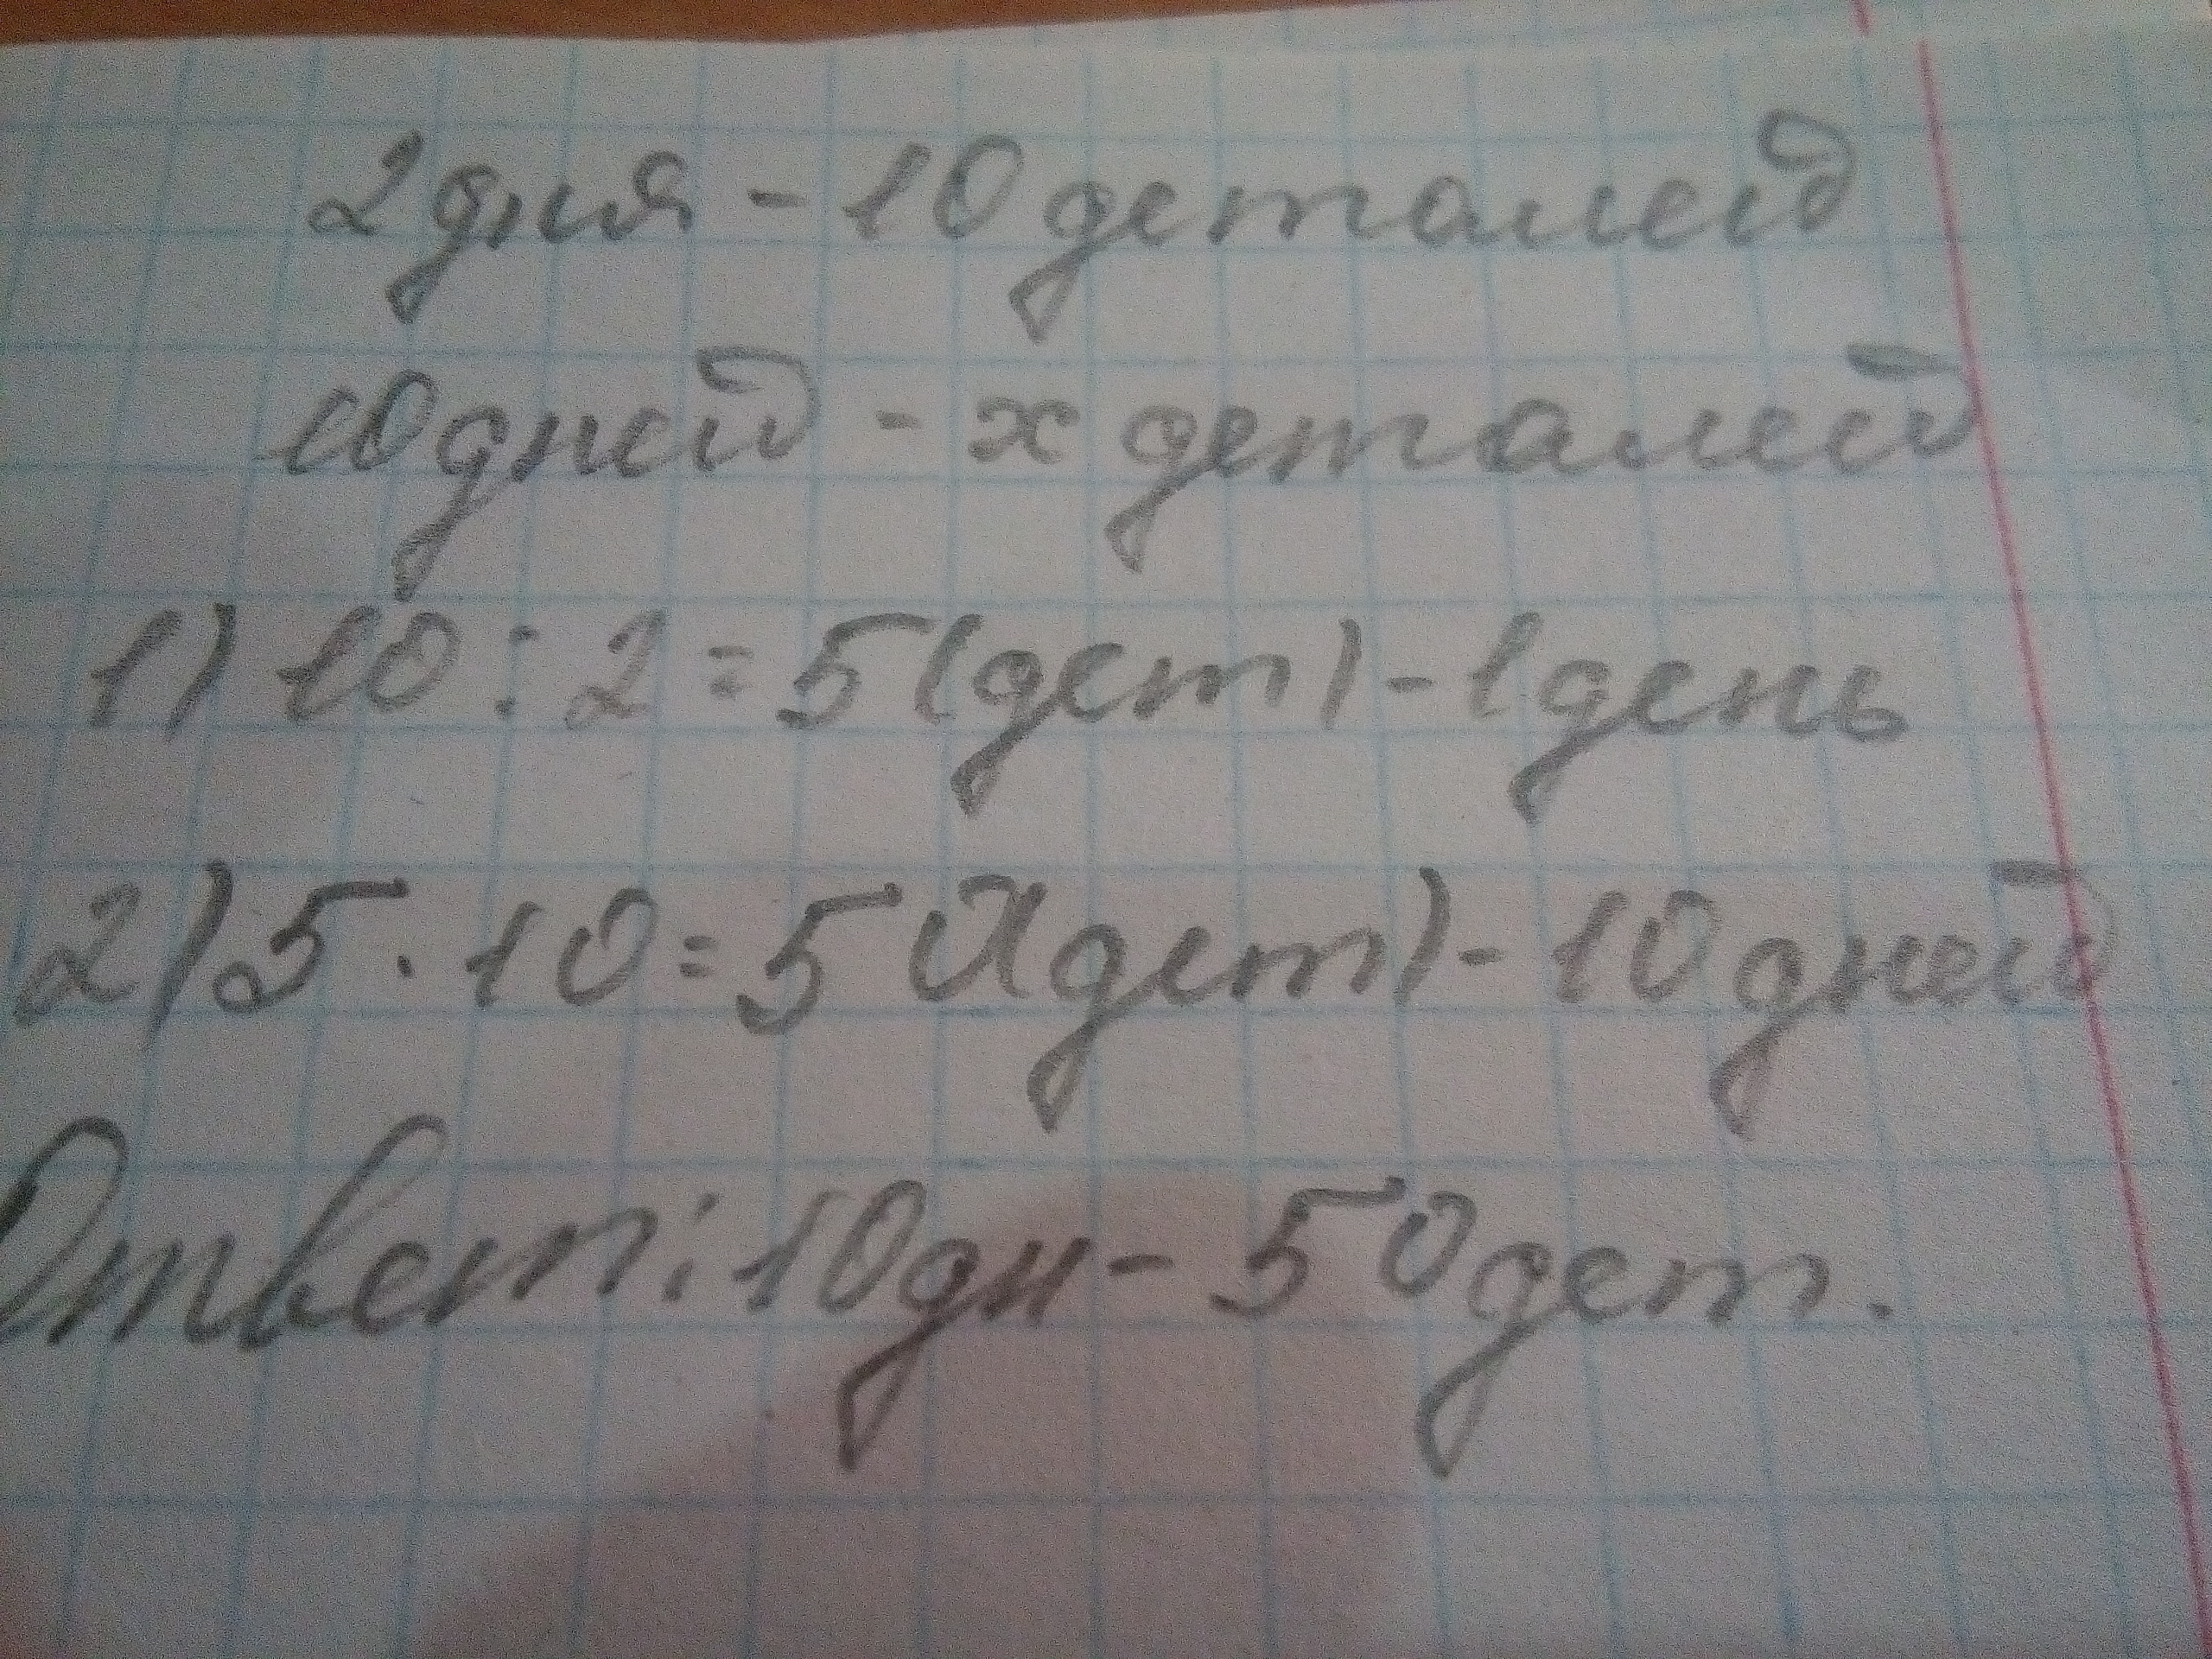 2 дня - 10 деталей
10 дней - х деталей
1) 10 : 2 = 5 (дет) - 1 день
2) 5 · 10 = 50 (дет) - 10 дней
Ответ: 10 дн - 50 дет.